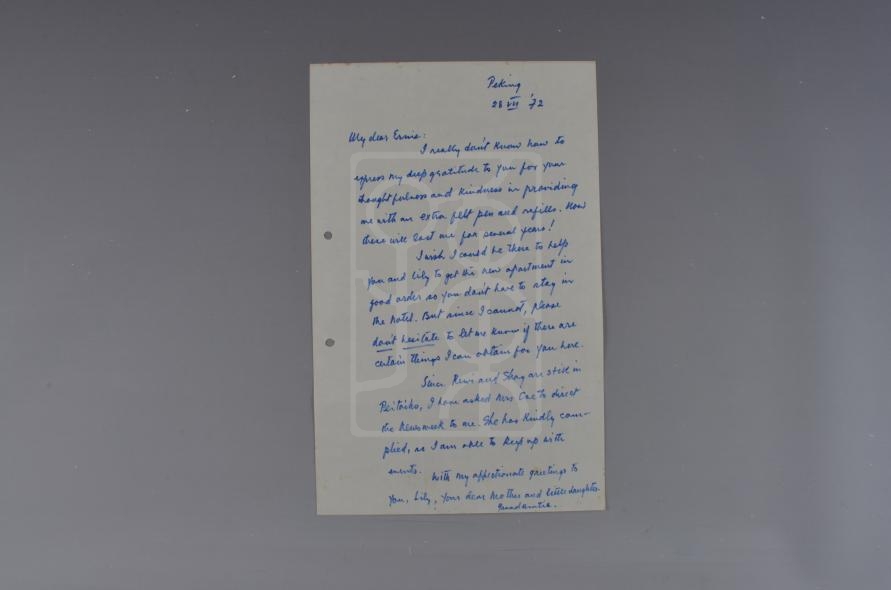 Peking
28 VII '72
My dear Ernie:
I really don't know how to
express my deep gratitude to you for your
thoughtfulness and kindness in providing
me with an extra felt pen and refills. Now
these will last me for several years!
I wish I could be there to help
you and Lily to get the new apartment in
good order so you don't have to stay in
the hotel. But since I cannot, please
don't hesitate to let me know if there are
certain things I can obtain for you here.
Since Rewi and Shag are still in
Peitaiho, I have asked Mrs to direct
the Newsweek to me. She has kindly com-
plied, so I am able to keep up with
events.
With my affectionate greetings to
you, Lily, your dear mother and little daughter.